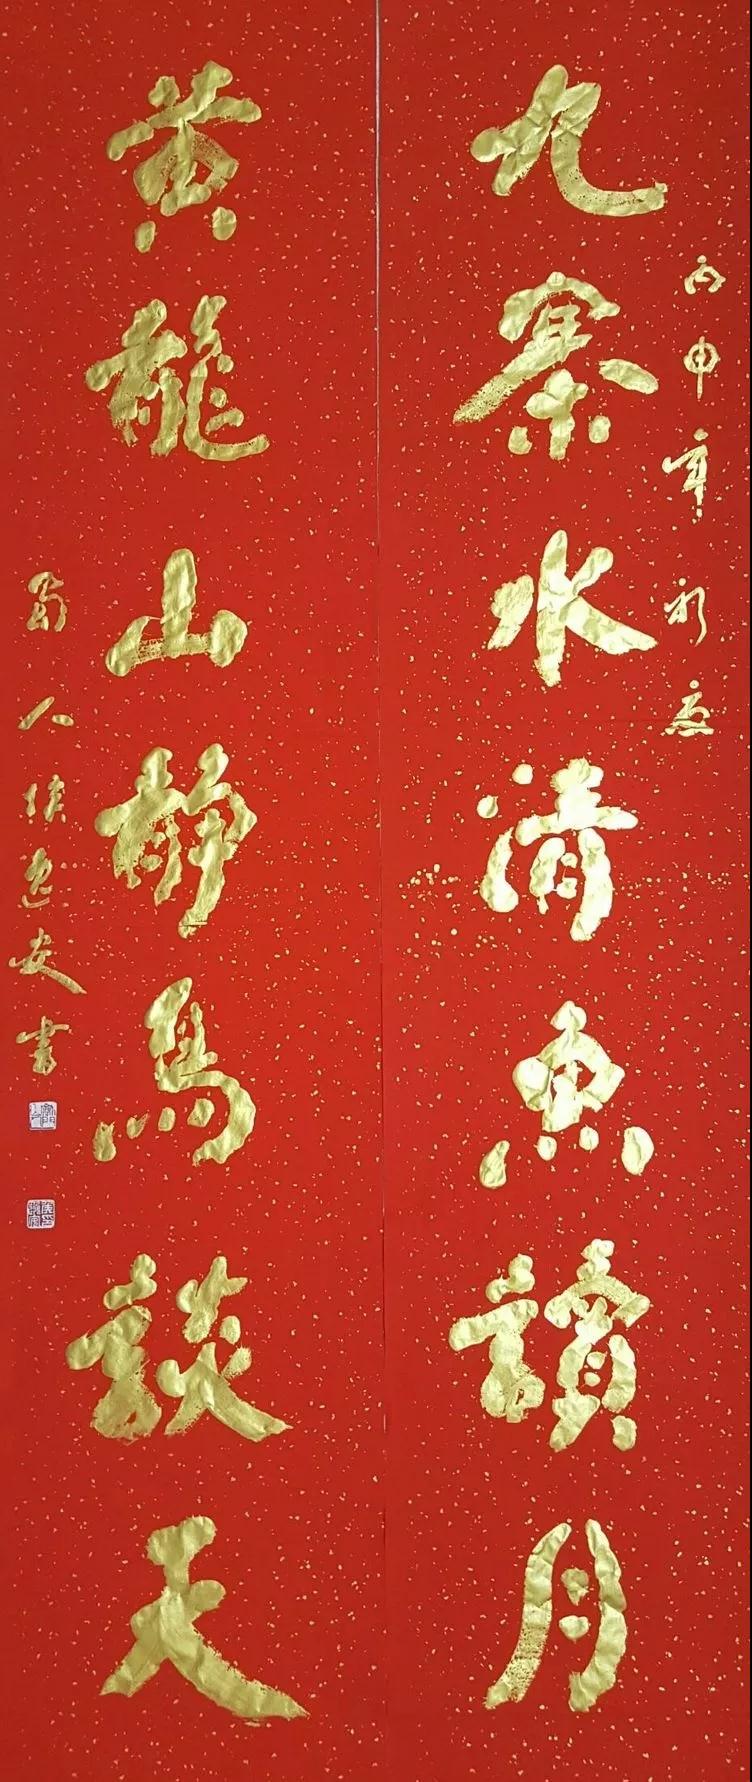 丙申年初
九寨水清魚讀月
黄龍山靜鳥談天
蜀人侯安書